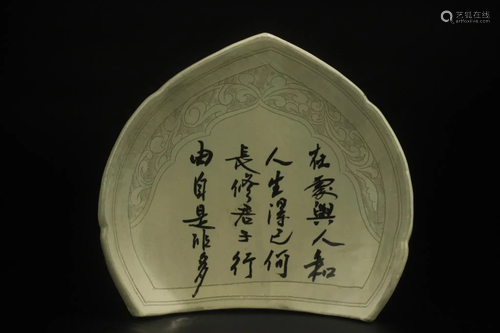 艺狐在线
artfoxlive.com
在處與人和
人生得已何
長修君子行
由自是非多